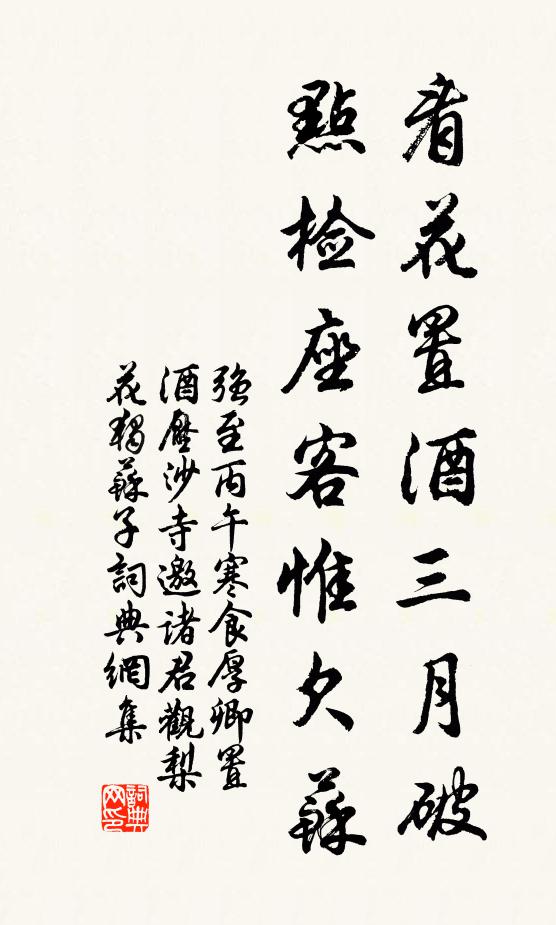 看花置酒三月破
點檢座客惟欠蘇
強至丙午寒食厚卿置
酒壓沙寺邀諸君觀梨
花獨蘇子詞典網集
詞典
网印